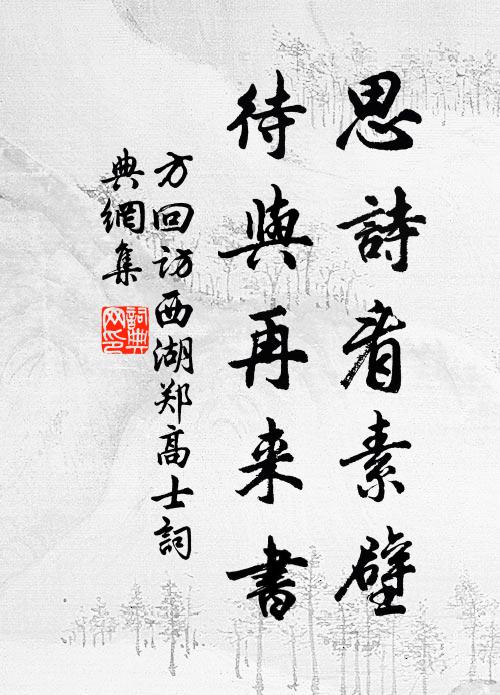 思詩看素壁
待與再来書
方回访西湖郑高士詞
典網集
詞典
网印